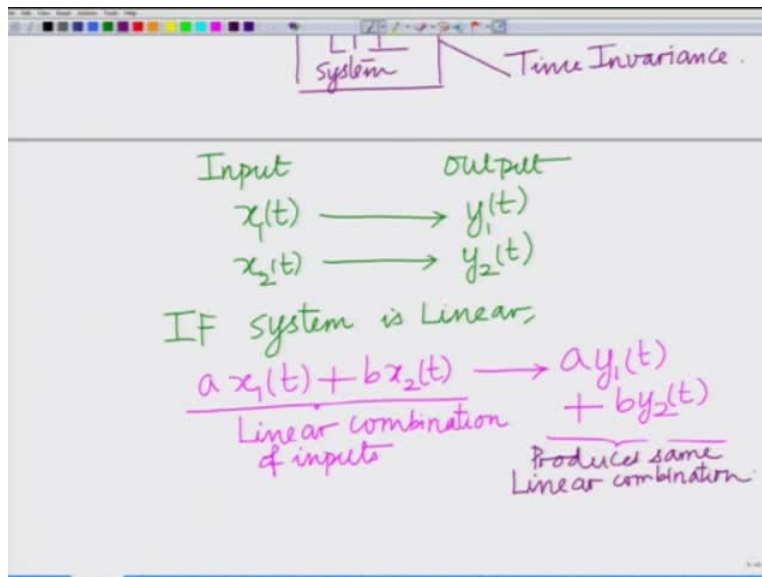 LTI
System
Time Invariance.
Input Output
x₁(t) → y₁(t)
x₂(t) → y₂(t)
IF system is Linear,
a x₁(t) + b x₂(t) → a y₁(t)
+ b y₂(t)
Linear combination
of inputs
Produces same
Linear combination.